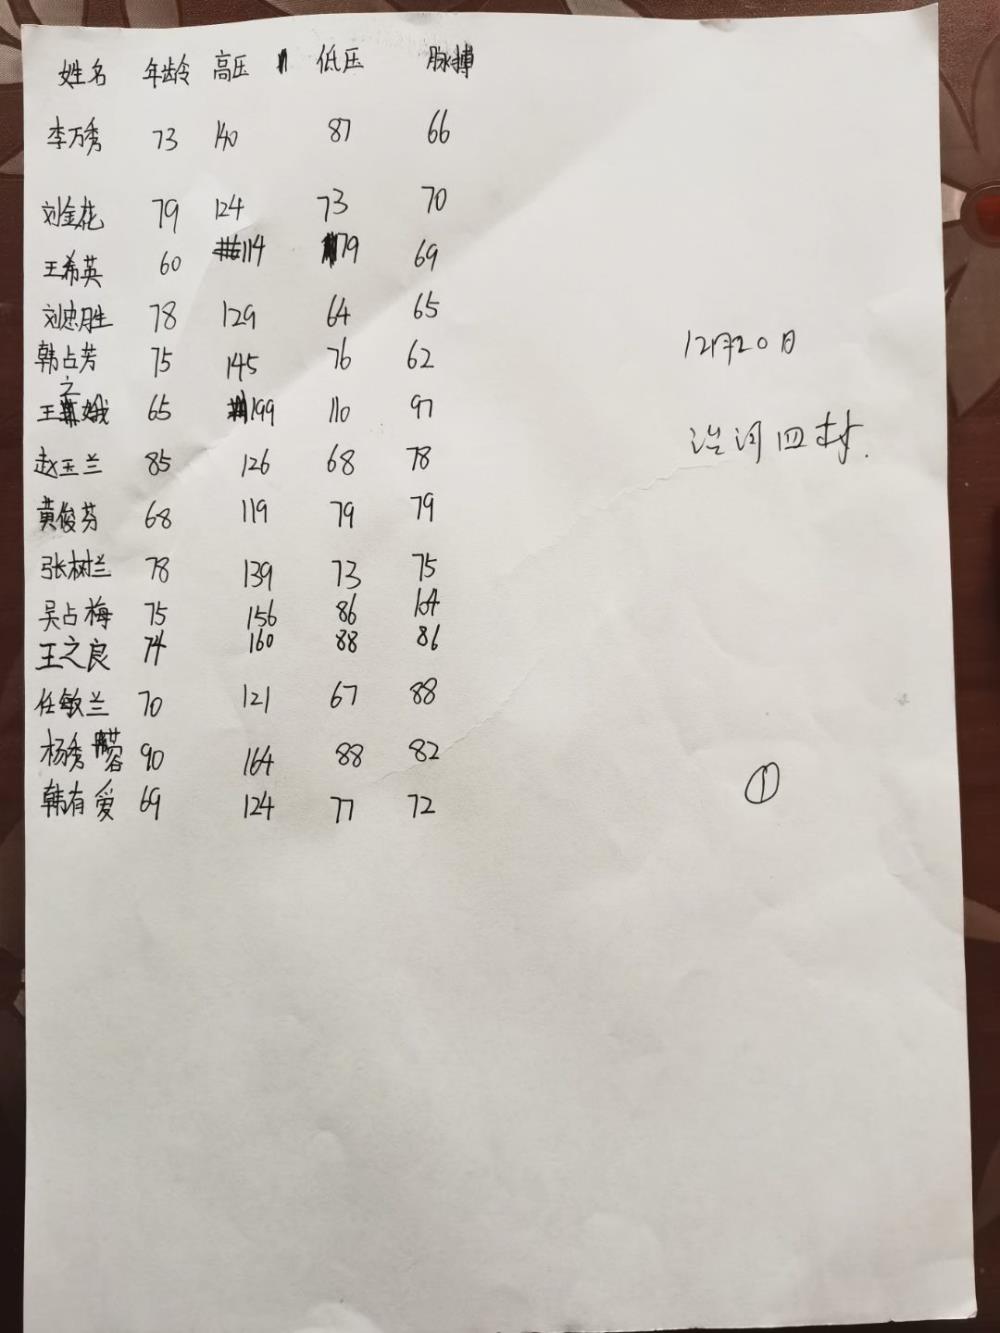 姓名 年龄 高压 低压 脉搏
李万秀 73 140 87 66
刘金花 79 124 73 70
王希英 60 114 79 69
刘忠胜 78 129 64 65
韩占芳 75 145 76 62
王之娥 65 199 110 97
赵玉兰 85 126 68 78
黄俊芬 68 119 79 79
张树兰 78 139 73 75
吴占梅 75 156 86 104
王之良 74 160 88 86
任敏兰 70 121 67 88
杨秀蓉 90 164 88 82
韩有爱 69 124 77 72
12月20日
河四村.
①